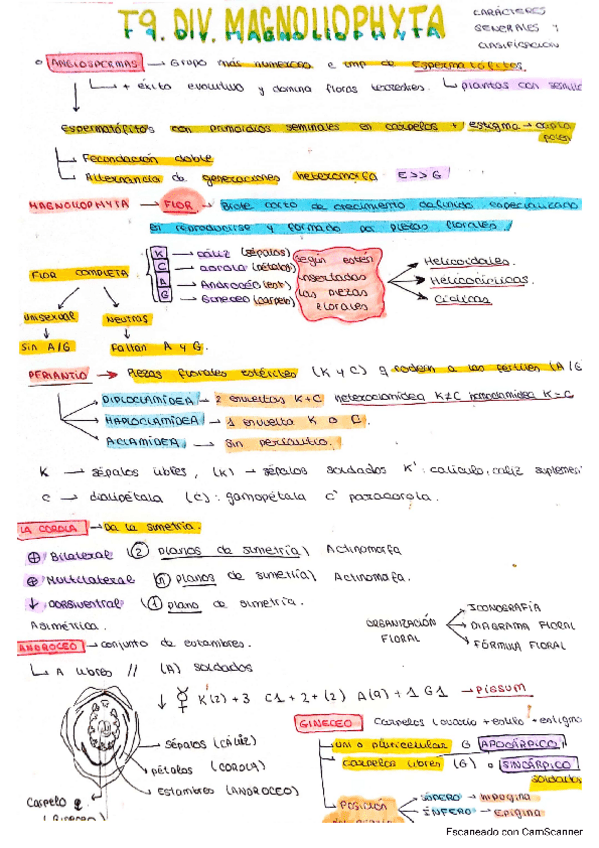 T9. DIV. MAGNOLIOPHYTA
CARÁCTERES GENERALES Y CLASIFICACIÓN
ANGIOSPERMAS → Grupo más numeroso e imp de Espermatófitos.
+ éxito evolutivo y domina floras terrestres. plantas con semilla
Espermatófitos con primordios seminales en carpelos + estigma → capta polen
Fecundación doble
Alternancia de generaciones heteromorfa E>>G
MAGNOLIOPHYTA → FLOR → Brote corto de crecimiento definido especializado
en reproducirse y formado por piezas florales.
FLOR COMPLETA
K → cáliz (sépalos)
C → corola (pétalos)
A → Androceo (est)
G → Gineceo (carpelo)
según estén insertadas las piezas florales
Helicoidales.
Helicocíclicas.
Cíclicas
Unisexual
Neutras
Sin A/G
Faltan A y G.
PERIANTIO → Piezas florales estériles (K y C) q rodean a las fértiles (A/G
DIPLOCLAMÍDEA → 2 envueltas K+C heteroclamídea K≠C homoclamídea K=C
HAPLOCLAMÍDEA → 1 envuelta K o C.
ACLAMÍDEA → Sin periantio.
K → sépalos libres, (K) → sépalos soldados K': calículo, cáliz suplemen
C → dialipétala (C): gamopétala C' paracorola.
LA COROLA → Da la simetría.
Bilateral (2 planos de simetría) Actinomorfa
Multilateral (n planos de simetría) Actinomorfa.
↓ Dorsiventral (1 plano de simetría.
Asimétrica.
ORGANIZACIÓN FLORAL
ICONOGRAFÍA
DIAGRAMA FLORAL
FÓRMULA FLORAL
ANDROCEO → conjunto de estambres.
A libres // (A) soldados
↓ ☿ K(2) + 3 C1 + 2 + (2) A(9) + 1 G1 → Pissum
sépalos (CÁLIZ)
pétalos (COROLA)
estambres (ANDROCEO)
Carpelo
(Gineceo)
GINECEO Carpelos (ovario + estilo + estigma
uni o pluricelular G APOCÁRPICO
carpelos libres (G) o SINCÁRPICO
soldados
Posición
SÚPERO → Hipogina
ÍNFERO → Epígina
Escaneado con CamScanner